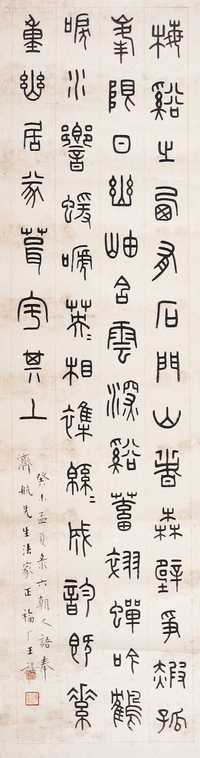 梅谿之西有石門山者森壁爭霞孤
峯限日幽岫含雲深谿蓄翠蟬吟鶴
唳水響蝯嗁英〻相雜緜〻成韵既素
重幽居㒸葺宇其上
癸未孟夏彔六朝人語奉
齊航先生法家正福厂王禔